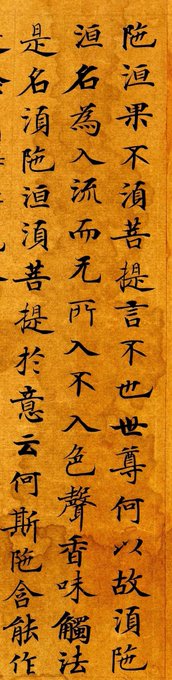 陁洹果不湏菩提言不也世尊何以故湏陁
洹名為入流而无所入不入色聲香味觸法
是名湏陁洹湏菩提於意云何斯陁含能作